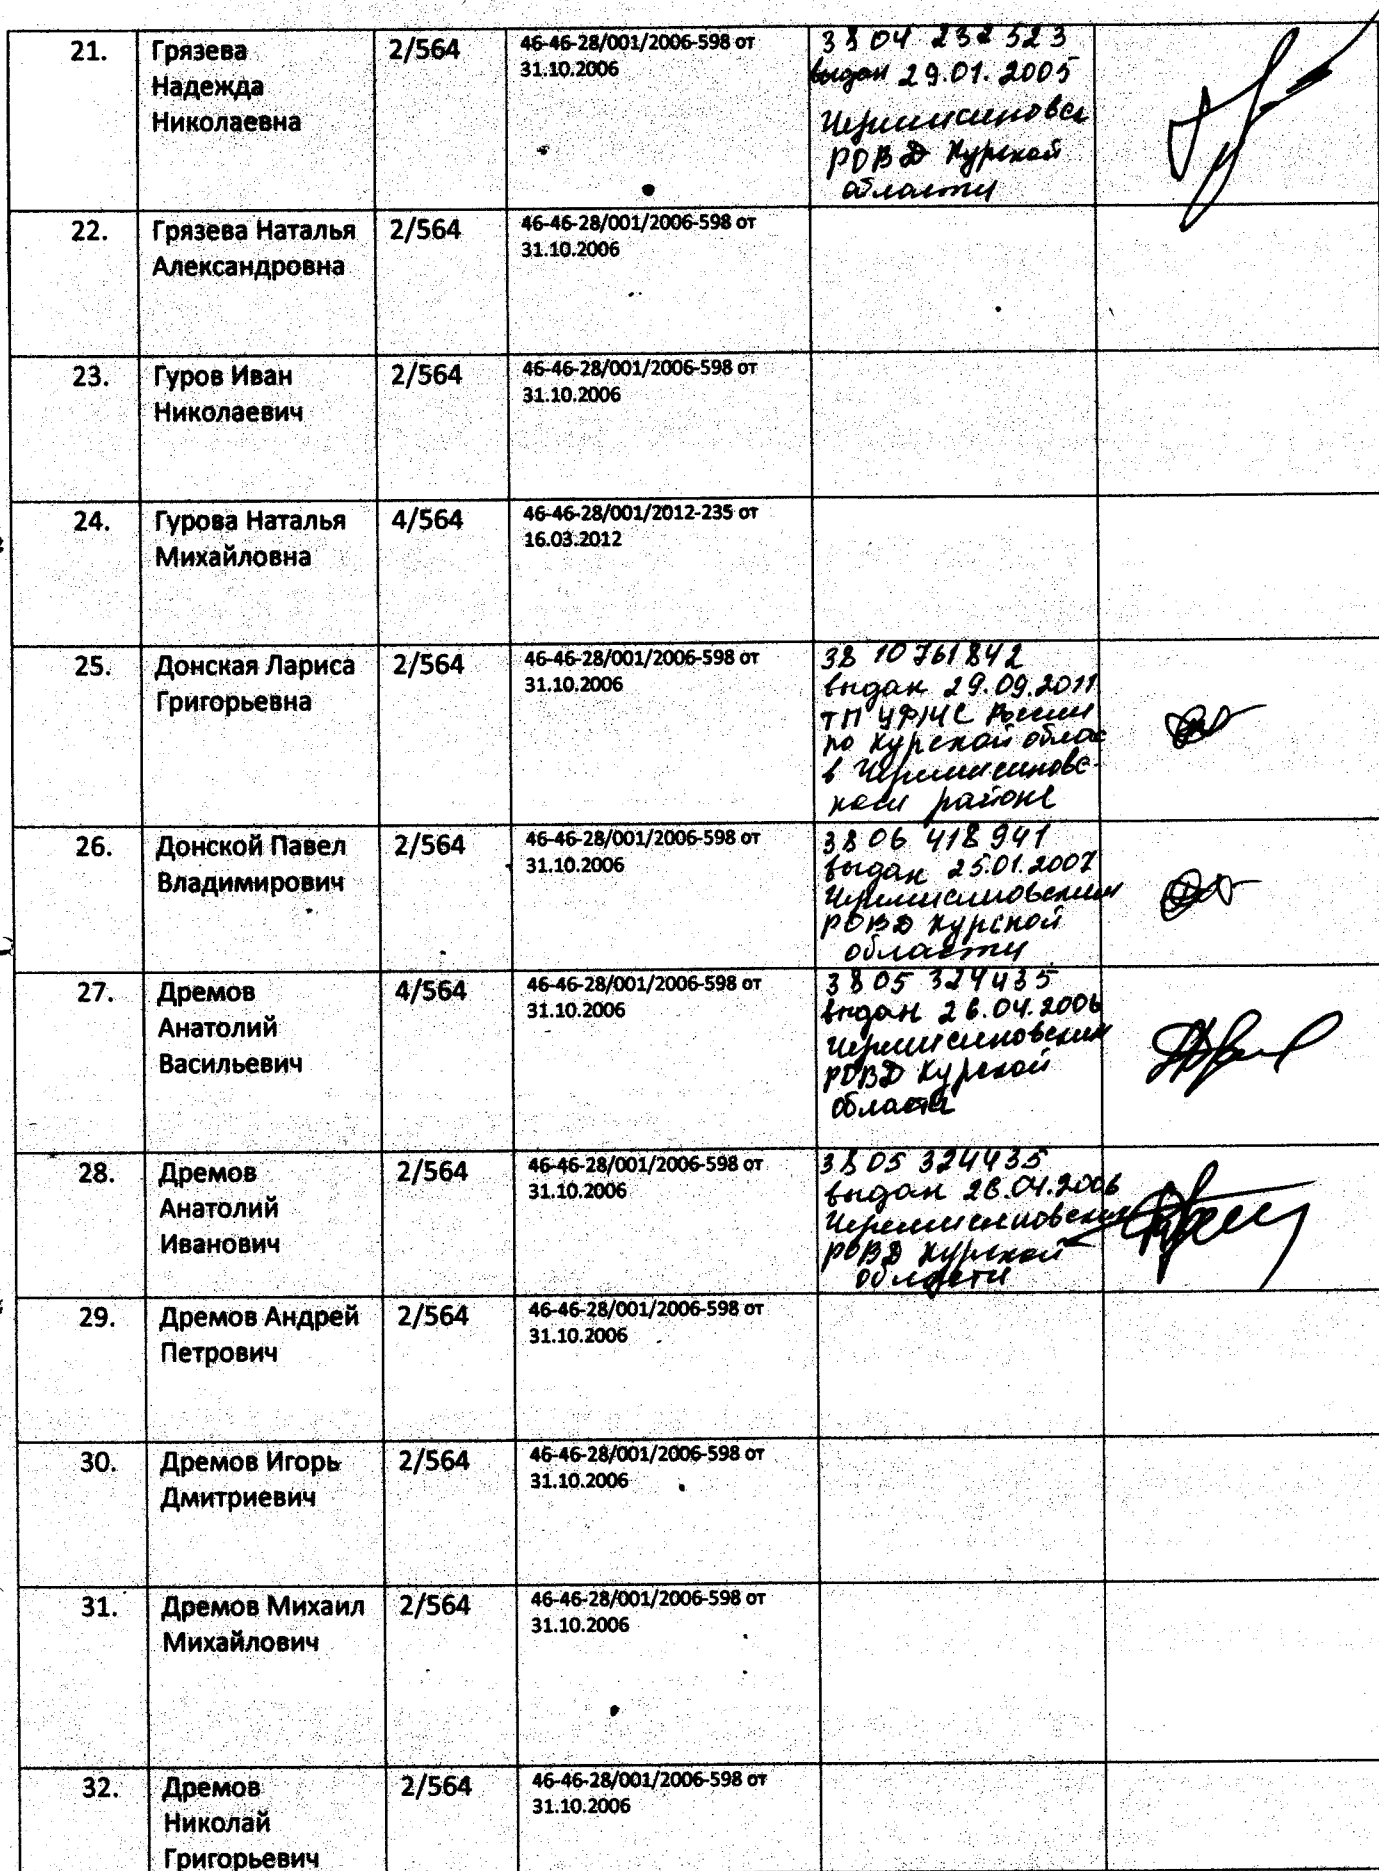 21.
Грязева
Надежда
Николаевна
2/564
46-46-28/001/2006-598 от
31.10.2006
38 04 232 523
выдан 29.01.2005
РОВД Курской
области
22.
Грязева Наталья
Александровна
2/564
46-46-28/001/2006-598 от
31.10.2006
23.
Гуров Иван
Николаевич
2/564
46-46-28/001/2006-598 от
31.10.2006
24.
Гурова Наталья
Михайловна
4/564
46-46-28/001/2012-235 от
16.03.2012
25.
Донская Лариса
Григорьевна
2/564
46-46-28/001/2006-598 от
31.10.2006
38 10 761842
выдан 29.09.2011
ТП УФМС России
по Курской облас
в Черемисиновс-
ком районе
26.
Донской Павел
Владимирович
2/564
46-46-28/001/2006-598 от
31.10.2006
38 06 418 941
выдан 25.01.2007
Черемисиновским
РОВД Курской
области
27.
Дремов
Анатолий
Васильевич
4/564
46-46-28/001/2006-598 от
31.10.2006
38 05 324435
выдан 26.04.2006
Черемисиновским
РОВД Курской
области
28.
Дремов
Анатолий
Иванович
2/564
46-46-28/001/2006-598 от
31.10.2006
38 05 324435
выдан 26.04.2006
Черемисиновским
РОВД Курской
области
29.
Дремов Андрей
Петрович
2/564
46-46-28/001/2006-598 от
31.10.2006
30.
Дремов Игорь
Дмитриевич
2/564
46-46-28/001/2006-598 от
31.10.2006
31.
Дремов Михаил
Михайлович
2/564
46-46-28/001/2006-598 от
31.10.2006
32.
Дремов
Николай
Григорьевич
2/564
46-46-28/001/2006-598 от
31.10.2006